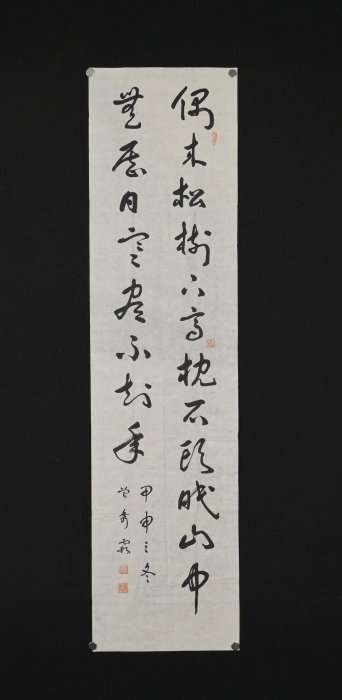 偶来松樹下高枕石頭眠山中
無曆日寒尽不知年
甲申之冬
曾秀霞